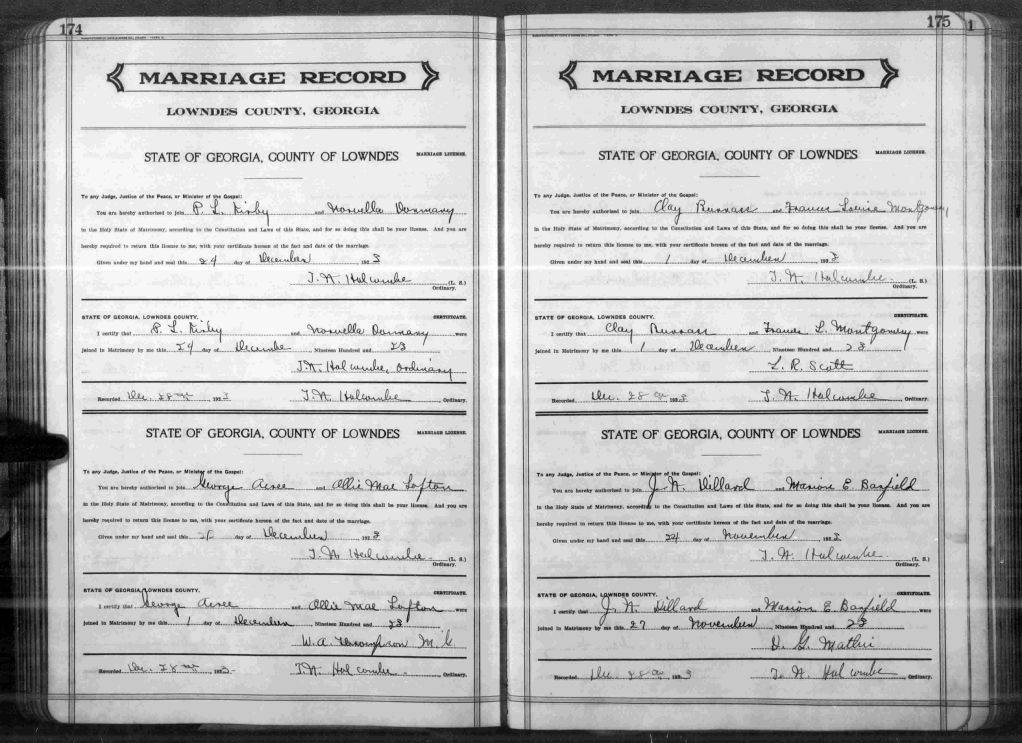 174
MARRIAGE RECORD
LOWNDES COUNTY, GEORGIA
STATE OF GEORGIA, COUNTY OF LOWNDES MARRIAGE LICENSE.
To any Judge, Justice of the Peace, or Minister of the Gospel:
You are hereby authorized to join P. L. Kirby and Norvella Dormany
in the Holy State of Matrimony, according to the Constitution and Laws of this State, and for so doing this shall be your license. And you are
hereby required to return this license to me, with your certificate hereon of the fact and date of the marriage.
Given under my hand and seal this 24 day of December 1923
T. N. Holcombe (L. S.)
Ordinary.
STATE OF GEORGIA, LOWNDES COUNTY. CERTIFICATE.
I certify that P. L. Kirby and Norvella Dormany were
joined in Matrimony by me this 24 day of December Nineteen Hundred and 23
T. N. Holcombe, Ordinary
Recorded Dec. 28 1923 T. N. Holcombe, Ordinary.
STATE OF GEORGIA, COUNTY OF LOWNDES MARRIAGE LICENSE.
To any Judge, Justice of the Peace, or Minister of the Gospel:
You are hereby authorized to join George Acree and Allie Mae Lofton
in the Holy State of Matrimony, according to the Constitution and Laws of this State, and for so doing this shall be your license. And you are
hereby required to return this license to me, with your certificate hereon of the fact and date of the marriage.
Given under my hand and seal this day of December 1923
T. N. Holcombe (L. S.)
Ordinary.
STATE OF GEORGIA, LOWNDES COUNTY. CERTIFICATE.
I certify that George Acree and Allie Mae Lofton were
joined in Matrimony by me this 1 day of December, Nineteen Hundred and 23
W. A. Thompson M. G.
Recorded Dec. 28 1923 T. N. Holcombe, Ordinary.
175
MARRIAGE RECORD
LOWNDES COUNTY, GEORGIA
STATE OF GEORGIA, COUNTY OF LOWNDES MARRIAGE LICENSE.
To any Judge, Justice of the Peace, or Minister of the Gospel:
You are hereby authorized to join Clay and Frances Louise Montgomery
in the Holy State of Matrimony, according to the Constitution and Laws of this State, and for so doing this shall be your license. And you are
hereby required to return this license to me, with your certificate hereon of the fact and date of the marriage.
Given under my hand and seal this 1 day of December 1923
T. N. Holcombe (L. S.)
Ordinary.
STATE OF GEORGIA, LOWNDES COUNTY. CERTIFICATE.
I certify that Clay and Frances L. Montgomery were
joined in Matrimony by me this 1 day of December, Nineteen Hundred and 23
L. R. Scott
Recorded Dec. 28 1923 T. N. Holcombe, Ordinary.
STATE OF GEORGIA, COUNTY OF LOWNDES MARRIAGE LICENSE.
To any Judge, Justice of the Peace, or Minister of the Gospel:
You are hereby authorized to join J. N. Dillard and Marion E. Barfield
in the Holy State of Matrimony, according to the Constitution and Laws of this State, and for so doing this shall be your license. And you are
hereby required to return this license to me, with your certificate hereon of the fact and date of the marriage.
Given under my hand and seal this 24 day of November 1923
T. N. Holcombe (L. S.)
Ordinary.
STATE OF GEORGIA, LOWNDES COUNTY. CERTIFICATE.
I certify that J. N. Dillard and Marion E. Barfield were
joined in Matrimony by me this 27 day of November, Nineteen Hundred and 23
Recorded Dec. 28 1923 T. N. Holcombe, Ordinary.
1